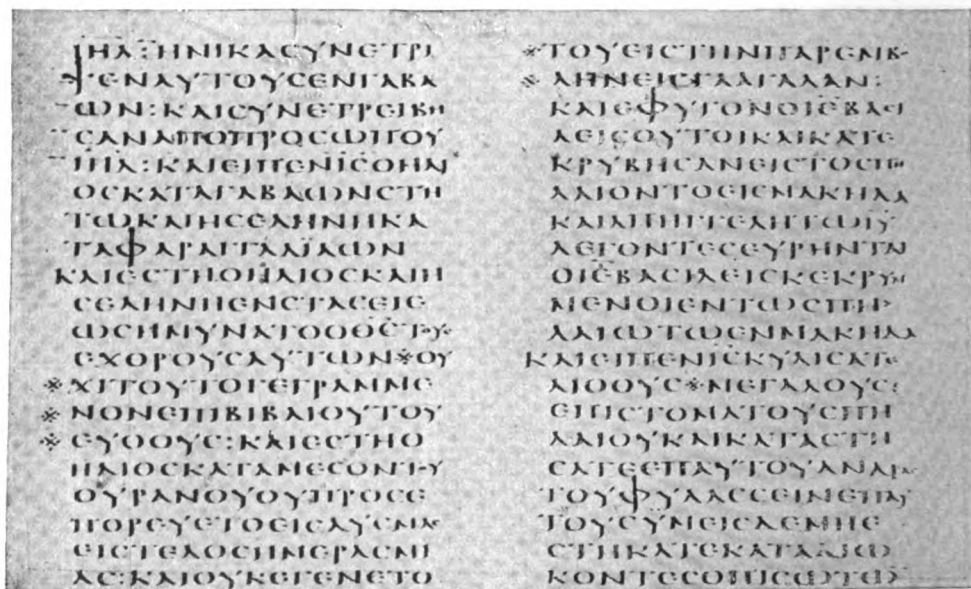 ΙΗΛ:ΗΝΙΚΑϹΥΝΕΤΡΙ
ΨΕΝΑΥΤΟΥϹΕΝΓΑΒΑ
ΩΝ:ΚΑΙϹΥΝΕΤΡΕΙΒΗ
ϹΑΝΑΠΟΠΡΟϹΩΠΟΥ
ΙΗΛ:ΚΑΙΕΙΠΕΝΙϹΟΗΛΙ
ΟϹΚΑΤΑΓΑΒΑΩΝϹΤΗ
ΤΩΚΑΙΗϹΕΛΗΝΗΚΑ
ΤΑΦΑΡΑΓΓΑΑΪΛΩΝ
ΚΑΙΕϹΤΗΟΗΛΙΟϹΚΑΙΗ
ϹΕΛΗΝΗΕΝϹΤΑϹΕΙΕ
ΩϹΗΜΥΝΑΤΟΟΘϹΤΟΥϹ
ΕΧΘΡΟΥϹΑΥΤΩΝ※ΟΥ
※ΧΙΤΟΥΤΟΓΕΓΡΑΜΜΕ
※ΝΟΝΕΠΙΒΙΒΛΙΟΥΤΟΥ
※ΕΥΘΟΥϹ:ΚΑΙΕϹΤΗΟ
ΗΛΙΟϹΚΑΤΑΜΕϹΟΝΤΟΥ
ΟΥΡΑΝΟΥΟΥΠΡΟϹΕ
ΠΟΡΕΥΕΤΟΕΙϹΔΥϹΜΑϹ
ΕΙϹΤΕΛΟϹΗΜΕΡΑϹΜΙ
ΑϹ:ΚΑΙΟΥΚΕΓΕΝΕΤΟ
※ΤΟΥΕΙϹΤΗΝΠΑΡΕΜΒΟ
※ΛΗΝΕΙϹΓΑΛΓΑΛΑΝ:
ΚΑΙΕΦΥΓΟΝΟΙΕΒΑϹΙ
ΛΕΙϹΟΥΤΟΙΚΑΙΚΑΤΕ
ΚΡΥΒΗϹΑΝΕΙϹΤΟϹΠΗ
ΛΑΙΟΝΤΟΕΙϹΜΑΚΗΔΑ
ΚΑΙΑΠΗΓΓΕΛΗΤΩΙΥ
ΛΕΓΟΝΤΕϹΕΥΡΗΝΤΑΙ
ΟΙΕΒΑϹΙΛΕΙϹΚΕΚΡΥΜ
ΜΕΝΟΙΕΝΤΩϹΠΗ
ΛΑΙΩΤΩΕΝΜΑΚΗΔΑ
ΚΑΙΕΙΠΕΝΙϹΚΥΛΙϹΑΤΕ
ΛΙΘΟΥϹ※ΜΕΓΑΛΟΥϹ:
ΕΠΙϹΤΟΜΑΤΟΥϹΠΗ
ΛΑΙΟΥΚΑΙΚΑΤΑϹΤΗ
ϹΑΤΕΕΠΑΥΤΟΥΑΝΔΡΑϹ
ΤΟΥΦΥΛΑϹϹΕΙΝΕΠΑΥ
ΤΟΥϹΥΜΕΙϹΔΕΜΗΕ
ϹΤΗΚΑΤΕΚΑΤΑΔΙΩ
ΚΟΝΤΕϹΟΠΙϹΩΤΩ